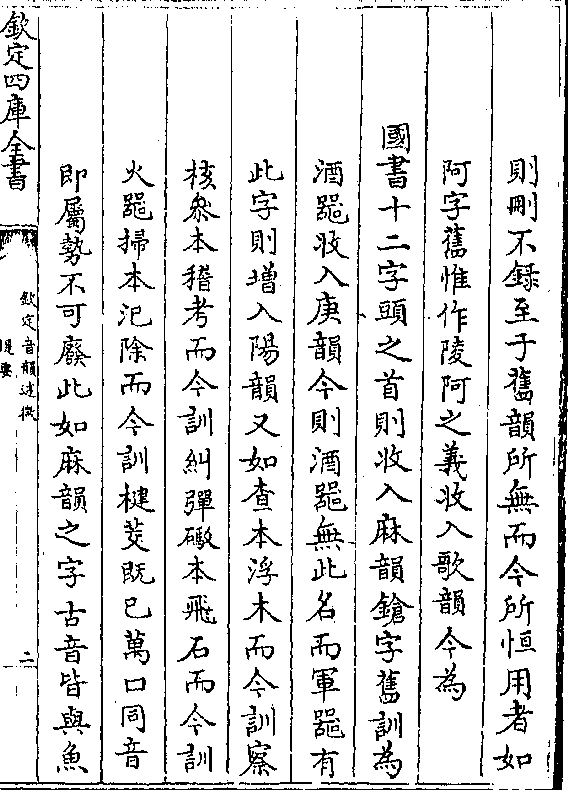 則刪不録至于舊韻所無而今所恒用者如
阿字舊惟作陵阿之義收入歌韻今為
國書十二字頭之首則收入麻韻鎗字舊訓為
酒器收入庚韻今則酒器無此名而軍器有
此字則增入陽韻又如查本浮木而今訓察
核叅本稽考而今訓糾彈礮本飛石而今訓
火器掃本氾除而今訓楗茭既已萬口同音
即屬勢不可廢此如麻韻之字古音皆與魚
欽定四庫全書
欽定音韻述微
提要
二